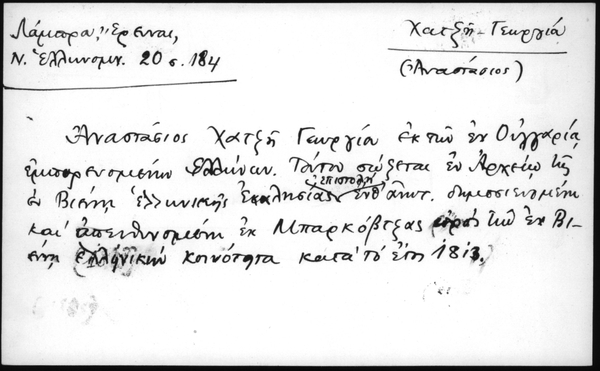 Λάμπρα, Ἔρευναι,
Ν. Ἑλληνομν. 20 σ. 184
Χατζῆ-Γεωργία
(Ἀναστάσιος)
Ἀναστάσιος Χατζῆ Γεωργία ἐκ τῶν ἐν Οὑγγαρίᾳ
ἐμπορευομένων Ἑλλήνων. Τούτου σώζεται ἐν Ἀρχείῳ τῆς
ἐν Βιέννῃ Ἑλληνικῆς Ἐκκλησίας ἐπιστολὴ δημοσιευομένη
καὶ ἀπευθυνομένη ἐκ Μπαρκόβτζας πρὸς τὴν ἐν Βι-
έννῃ ἑλληνικὴν κοινότητα κατὰ τὸ ἔτη 1813.